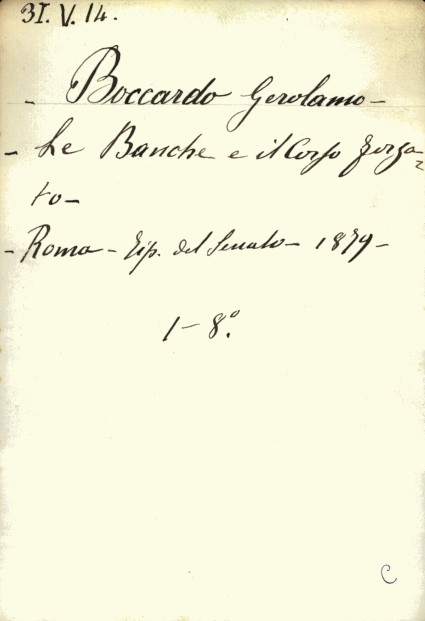 31.V.14.
- Boccardo Gerolamo -
- Le Banche e il Corso forza=
to -
- Roma - Tip. del Senato - 1879 -
1 - 8°.
C